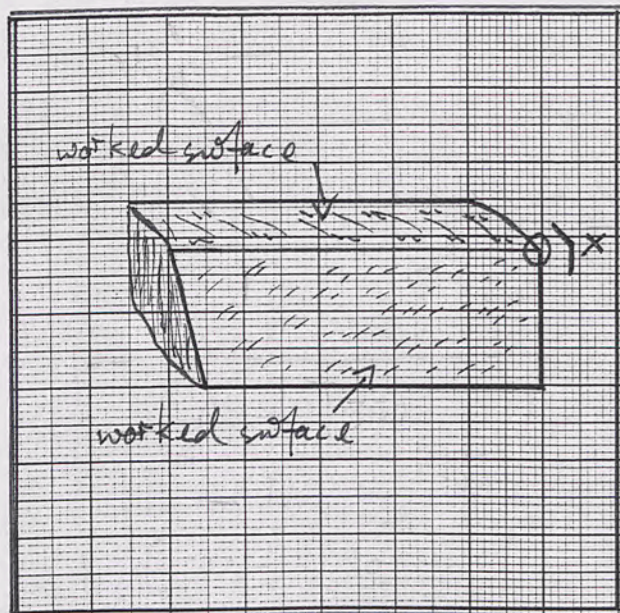 worked surface
x
worked surface